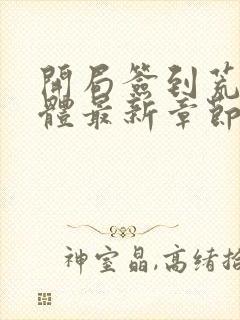 開局簽到荒
體最新章節
神室晶,高绪